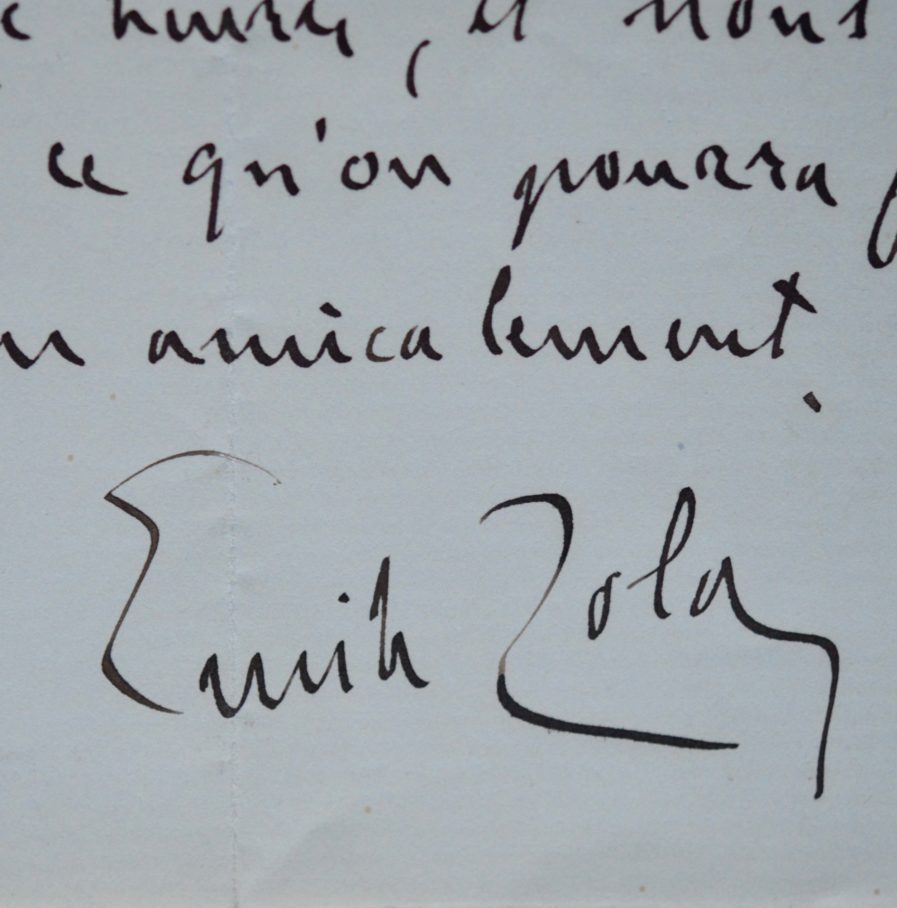 heure, et nous
ce qu'on pourra
amicalement.
Emile Zola